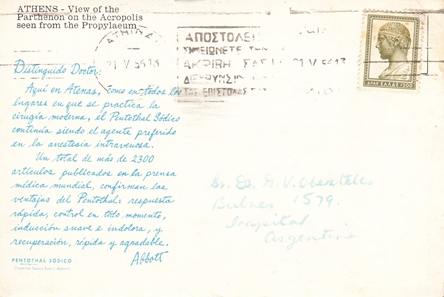 ATHENS - View of the
Parthenon on the Acropolis
seen from the Propylaeum
ΑΠΟΣΤΟΛΕΙ
ΣΗΜΕΙΩΝΕΤΕ ΤΗΝ
ΑΚΡΙΒΗ ΣΑΣ
ΔΙΕΥΘΥΝΣΙΝ
ΕΠΙΣΤΟΛΑΣ
Distinguido Doctor:
Aquí en Atenas, como en todos los
lugares en que se practica la
cirugía moderna, el Pentothal Sódico
continúa siendo el agente preferido
en la anestesia intravenosa.
Un total de más de 2300
artículos publicados en la prensa
médica mundial, confirman las
ventajas del Pentothal: respuesta
rápida, control en todo momento,
inducción suave e indolora, y
recuperación, rápida y agradable.
Abbott
PENTOTHAL SÓDICO
Bulnes 1579.
Argentina